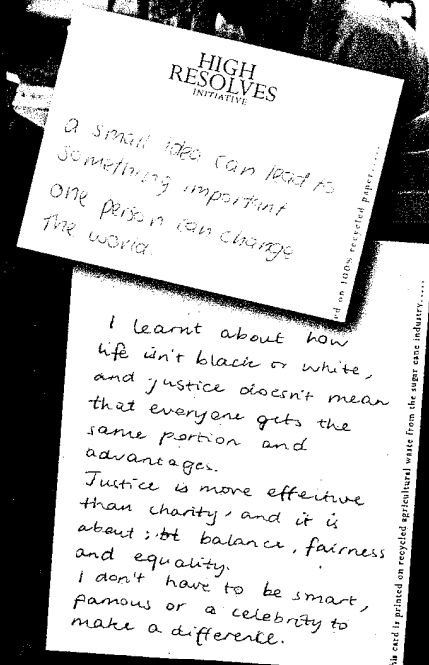 HIGH
RESOLVES
INITIATIVE
a small idea can lead to
something important
one person can change
the world.
ed on 100% recycled paper......
I learnt about how
life isn't black or white,
and justice doesn't mean
that everyone gets the
same portion and
advantages.
Justice is more effective
than charity, and it is
about ; bt balance, fairness
and equality.
I don't have to be smart,
famous or a celebrity to
make a difference.
his card is printed on recycled agricultural waste from the sugar cane industry......